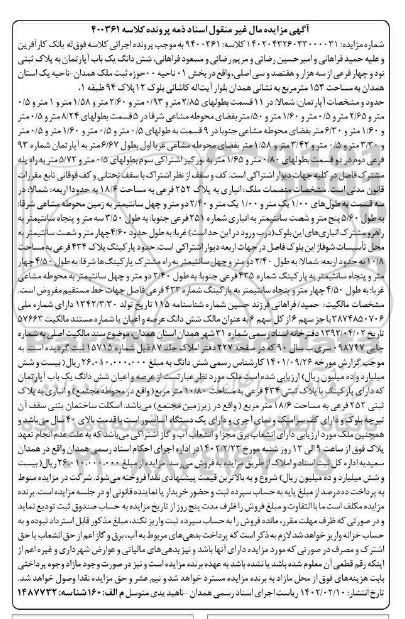 آگهی مزایده مال غیر منقول اسناد ذمه پرونده کلاسه ۴۰۰۳۶۱
شماره مزایده: ۱۴۰۲۰۴۳۲۶۰۳۳۰۰۰۰۳۱ کلاسه: ۹۴۰۰۳۶۱ به موجب پرونده اجرائی کلاسه فوق له بانک کارآفرین
و علیه حمید فراهانی و امیرحسین رضائی و مریم رضائی و مسعود فراهانی، شش دانگ یک باب آپارتمان به پلاک ثبتی
نود و چهار فرعی از سه هزار و هفتصد و سی اصلی، واقع در بخش ۰۱ ناحیه ۰۰ حوزه ثبت ملک همدان-ناحیه یک استان
همدان به مساحت ۱۵۳ متر مربع به نشانی همدان بلوار آیت اله کاشانی بلوک ۱۲ پلاک ۹۴ طبقه ۱.
حدود و مشخصات آپارتمان: شمالا: در ۱۱ قسمت بطولهای ۲/۸۵ متر و ۰/۹۳ متر و ۲/۶۰ متر و ۱/۵۸ متر و ۱ متر و ۰/۵
متر و ۲/۶۵ متر و ۰/۵ متر و ۱/۶۰ متر و ۱/۶۰ متر و ۴/۵۰ متر بفضای محوطه مشاعی شرقا: در ۵ قسمت بطولهای ۸/۲۴ متر و ۰/۵ متر
و ۱/۶۰ متر و ۶/۳۰ متر بفضای محوطه مشاعی جنوبا: در ۹ قسمت به طولهای ۰/۵ متر و ۰/۵ متر و ۱/۶۰ متر و ۰/۵ متر
و ۳/۳۰ متر و ۰/۵ متر و ۳/۴۲ متر و ۱/۵۸ متر بفضای محوطه مشاعی غربا: اول بطول ۶/۶۷ متر به آپارتمان شماره ۹۳
فرعی دوم در دو قسمت بطولهای ۰/۸۰ متر و ۱/۶۵ متر به نورگیر اشتراکی سوم بطولهای ۰/۵ متر و ۵/۷۲ متر به راه پله
مشترک فاصل در کلیه جهات دیوار اشتراکی است. کف و سقف از نظر اشتراک با سقف تحتانی و کف فوقانی تابع مقررات
قانون مدنی است. مشخصات منضمات ملک: انباری به پلاک ۲۵۲ فرعی به مساحت ۱۸/۶ به حدود اربعه: شمالا: در
سه قسمت به طول های ۱/۰۰ یک متر و ۱/۰۰ یک متر و ۲/۴۰ دو متر و چهل سانتیمتر به زمین محوطه مشاعی شرقا:
به طول ۵/۶۰ پنج متر و شصت سانتیمتر به انباری شماره ۲۵۱ فرعی جنوبا: به طول ۳/۵۰ سه متر و پنجاه سانتیمتر به
راهرو مشترک انباری های این بلوک (درب ورود در این حد است) غربا: به طول حدود ۴/۶۰ چهار متر و شصت سانتیمتر به
محل تاسیسات شوفاژ این بلوک فاصل در جهات اربعه دیوار اشتراکی است. حدود پارکینگ پلاک ۴۳۴ فرعی به مساحت
۱۰/۸ به حدود اربعه: شمالا: به طول ۲/۴۰ دو متر و چهل سانتیمتر به راه مشترک پارکینگ ها شرقا: به طول ۴/۵۰ چهار
متر و پنجاه سانتیمتر به پارکینگ شماره ۴۳۵ فرعی جنوبا: به طول ۲/۴۰ دو متر و چهل سانتیمتر به محوطه مشاعی
غربا: به طول ۴/۵۰ چهار متر و پنجاه سانتیمتر به پارکینگ شماره ۴۳۳ فرعی فاصل جهات خط مستقیم مفروض است.
مشخصات مالکیت: حمید/فراهانی فرزند حسین شماره شناسنامه ۱۱۵ تاریخ تولد ۱۳۴۲/۳/۳۰ دارای شماره ملی
۳۸۷۴۸۵۰۷۰۶ با جز سهم ۶ از کل سهم ۶ به عنوان مالک شش دانگ عرصه و اعیان با شماره مستند مالکیت ۵۷۶۶۳
تاریخ ۱۳۹۲/۰۴/۰۲ دفترخانه اسناد رسمی شماره ۳۱ شهر همدان استان همدان موضوع سند مالکیت اصلی به شماره
چاپی ۰۹۸۷۴۷ سری ب سال ۹۱ که در صفحه ۲۲۷ دفتر املاک جلد ۸۷ ذیل شماره ۱۵۷۱۵ ثبت گردیده است. به
موجب گزارش مورخه ۱۴۰۱/۰۹/۲۶ کارشناس رسمی شش دانگ به مبلغ ۲۶،۰۱۰،۰۰۰،۰۰۰ ریال (بیست و شش
میلیارد و ده میلیون ریال) ارزیابی شده است ملک مورد نظر عبارتست از عرصه و اعیان شش دانگ یک باب آپارتمان
که دارای پارکینگ با پلاک ثبتی ۴۳۴ فرعی به مساحت ۱۰/۸۰ متر مربع (واقع در محوطه مجتمع) و انباری به پلاک
ثبتی ۲۵۲ فرعی به مساحت ۱۸/۶ متر مربع (واقع در زیرزمین مجتمع) می باشد. اسکلت ساختمان بتنی سقف آن
تیرچه بلوک و دارای کف سرامیک و نمای آجری و دارای یک دستگاه آسانسور است با قدمت بالای ۴۰ سال می باشد و
همچنین ملک مورد ارزیابی دارای انشعاب برق مجزا و انشعاب آب و گاز اشتراکی می باشد که به علت عدم انجام تعهد
پلاک فوق از ساعت ۹ الی ۱۲ روز شنبه مورخ ۱۴۰۲/۲/۲۳ در اداره اجرای احکام اسناد رسمی همدان واقع در همدان
سعیدیه اداره کل ثبت اسناد و املاک از طریق مزایده به فروش می رسد. مزایده از مبلغ ۲۶،۰۱۰،۰۰۰،۰۰۰ ریال (بیست
و شش میلیارد و ده میلیون ریال) شروع و به بالاترین قیمت پیشنهادی نقدا فروخته می شود. شرکت در مزایده منوط
به پرداخت ده درصد از مبلغ پایه به حساب سپرده ثبت و حضور خریدار یا نماینده قانونی او در جلسه مزایده است. برنده
مزایده مکلف است مابالتفاوت مبلغ فروش را ظرف مدت پنج روز از تاریخ مزایده به حساب صندوق ثبت تودیع نماید
و در صورتی که ظرف مهلت مقرر، مانده فروش را به حساب سپرده ثبت واریز نکند، مبلغ مذکور قابل استرداد نبوده و به
حساب خزانه واریز خواهد شد لازم به ذکر است که پرداخت بدهی های مربوط به آب، برق و گاز اعم از حق انشعاب یا حق
اشتراک و مصرف در صورتی که مورد مزایده دارای آنها باشد و نیز بدهی های مالیاتی و عوارض شهرداری و غیره اعم از
اینکه رقم قطعی آن معلوم شده باشد یا نشده باشد به عهده برنده مزایده است و نیز در صورت وجود مازاد وجوه پرداختی
بابت هزینه های فوق از محل مازاد به برنده مزایده مسترد خواهد شد و نیم عشر و حق مزایده نقدا وصول خواهد شد.
تاریخ انتشار: ۱۴۰۲/۰۲/۱۰ ریاست اجرای اسناد رسمی همدان-ناهید یدی متوسل م الف: ۱۶۰ شناسه: ۱۴۸۷۷۳۲